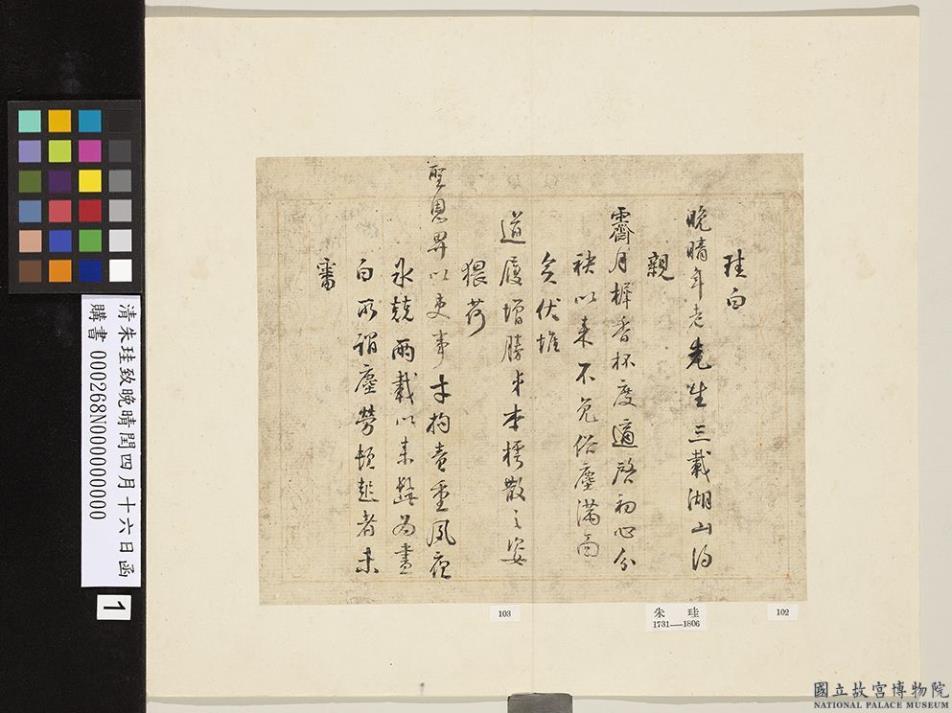 珪白
晚晴年老先生三載湖山得
親
霽月樨香杯度適啓初心分
袂以來不免俗塵滿面
矣伏惟
道履增勝弟本樗散之姿
猥荷
聖恩畀以吏事才拘責重夙夜
冰兢兩載以來鬚為盡
白所謂塵勞頓起者未
審
103
朱 珪
1731—1806
102
清朱珪致晚晴閏四月十六日函
購書 000268N000000000
1
國立故宮博物院
NATIONAL PALACE MUSEUM